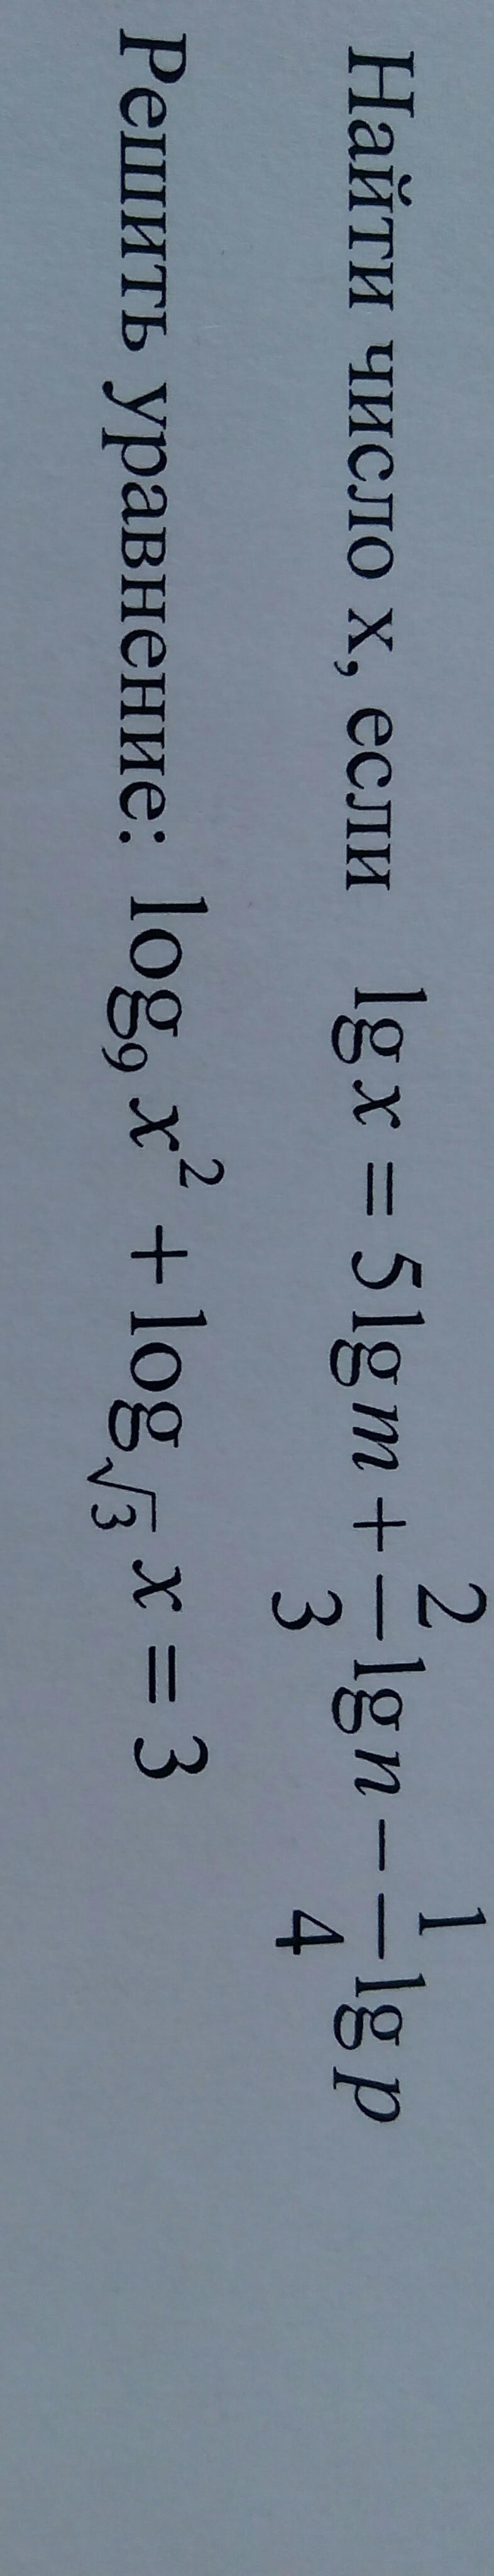 Найти число x, если lg x = 5 lg m + \frac{2}{3} lg n − \frac{1}{4} lg p
Решить уравнение: log₉ x² + log_{√3} x = 3